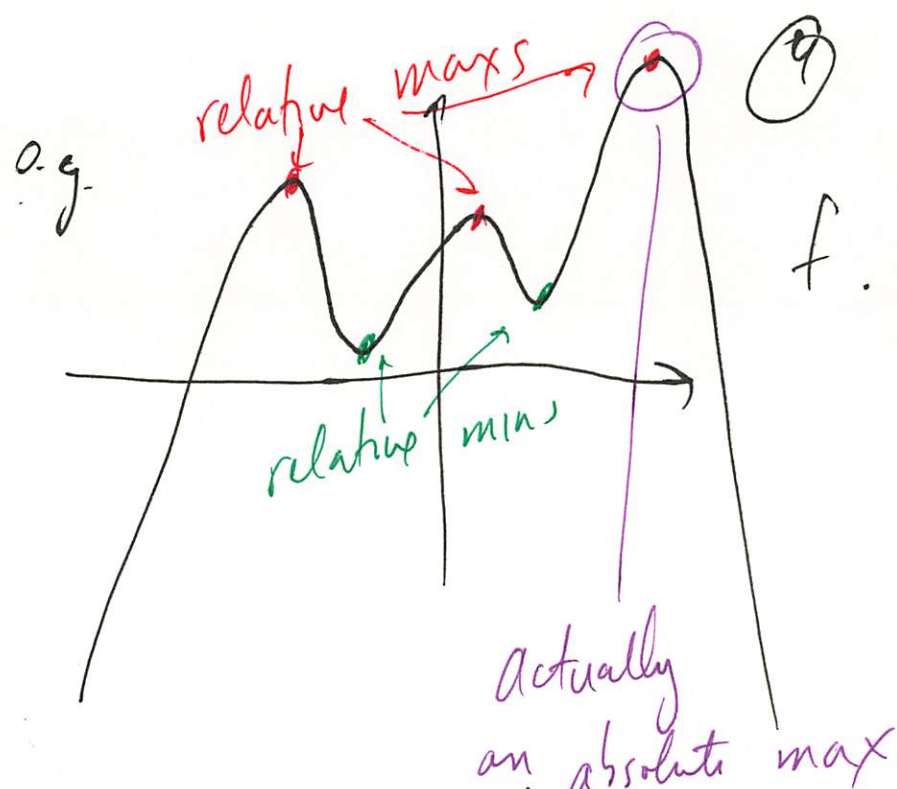 relative maxs
e.g.
f.
relative mins
actually
an absolute max